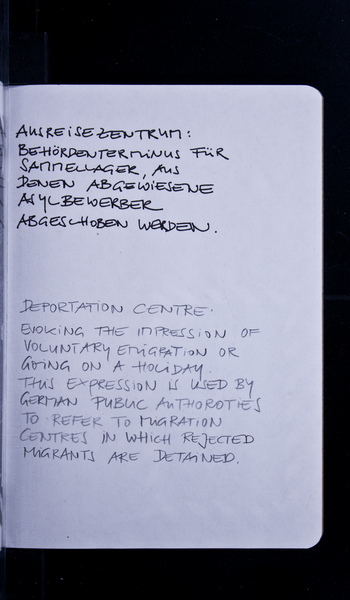 AUSREISEZENTRUM:
BEHÖRDENTERMINUS FÜR
SAMMELLAGER, AUS
DENEN ABGEWIESENE
ASYLBEWERBER
ABGESCHOBEN WERDEN.
DEPORTATION CENTRE.
EVOKING THE IMPRESSION OF
VOLUNTARY EMIGRATION OR
GOING ON A HOLIDAY.
THIS EXPRESSION IS USED BY
GERMAN PUBLIC AUTHOROTIES
TO REFER TO MIGRATION
CENTRES IN WHICH REJECTED
MIGRANTS ARE DETAINED.